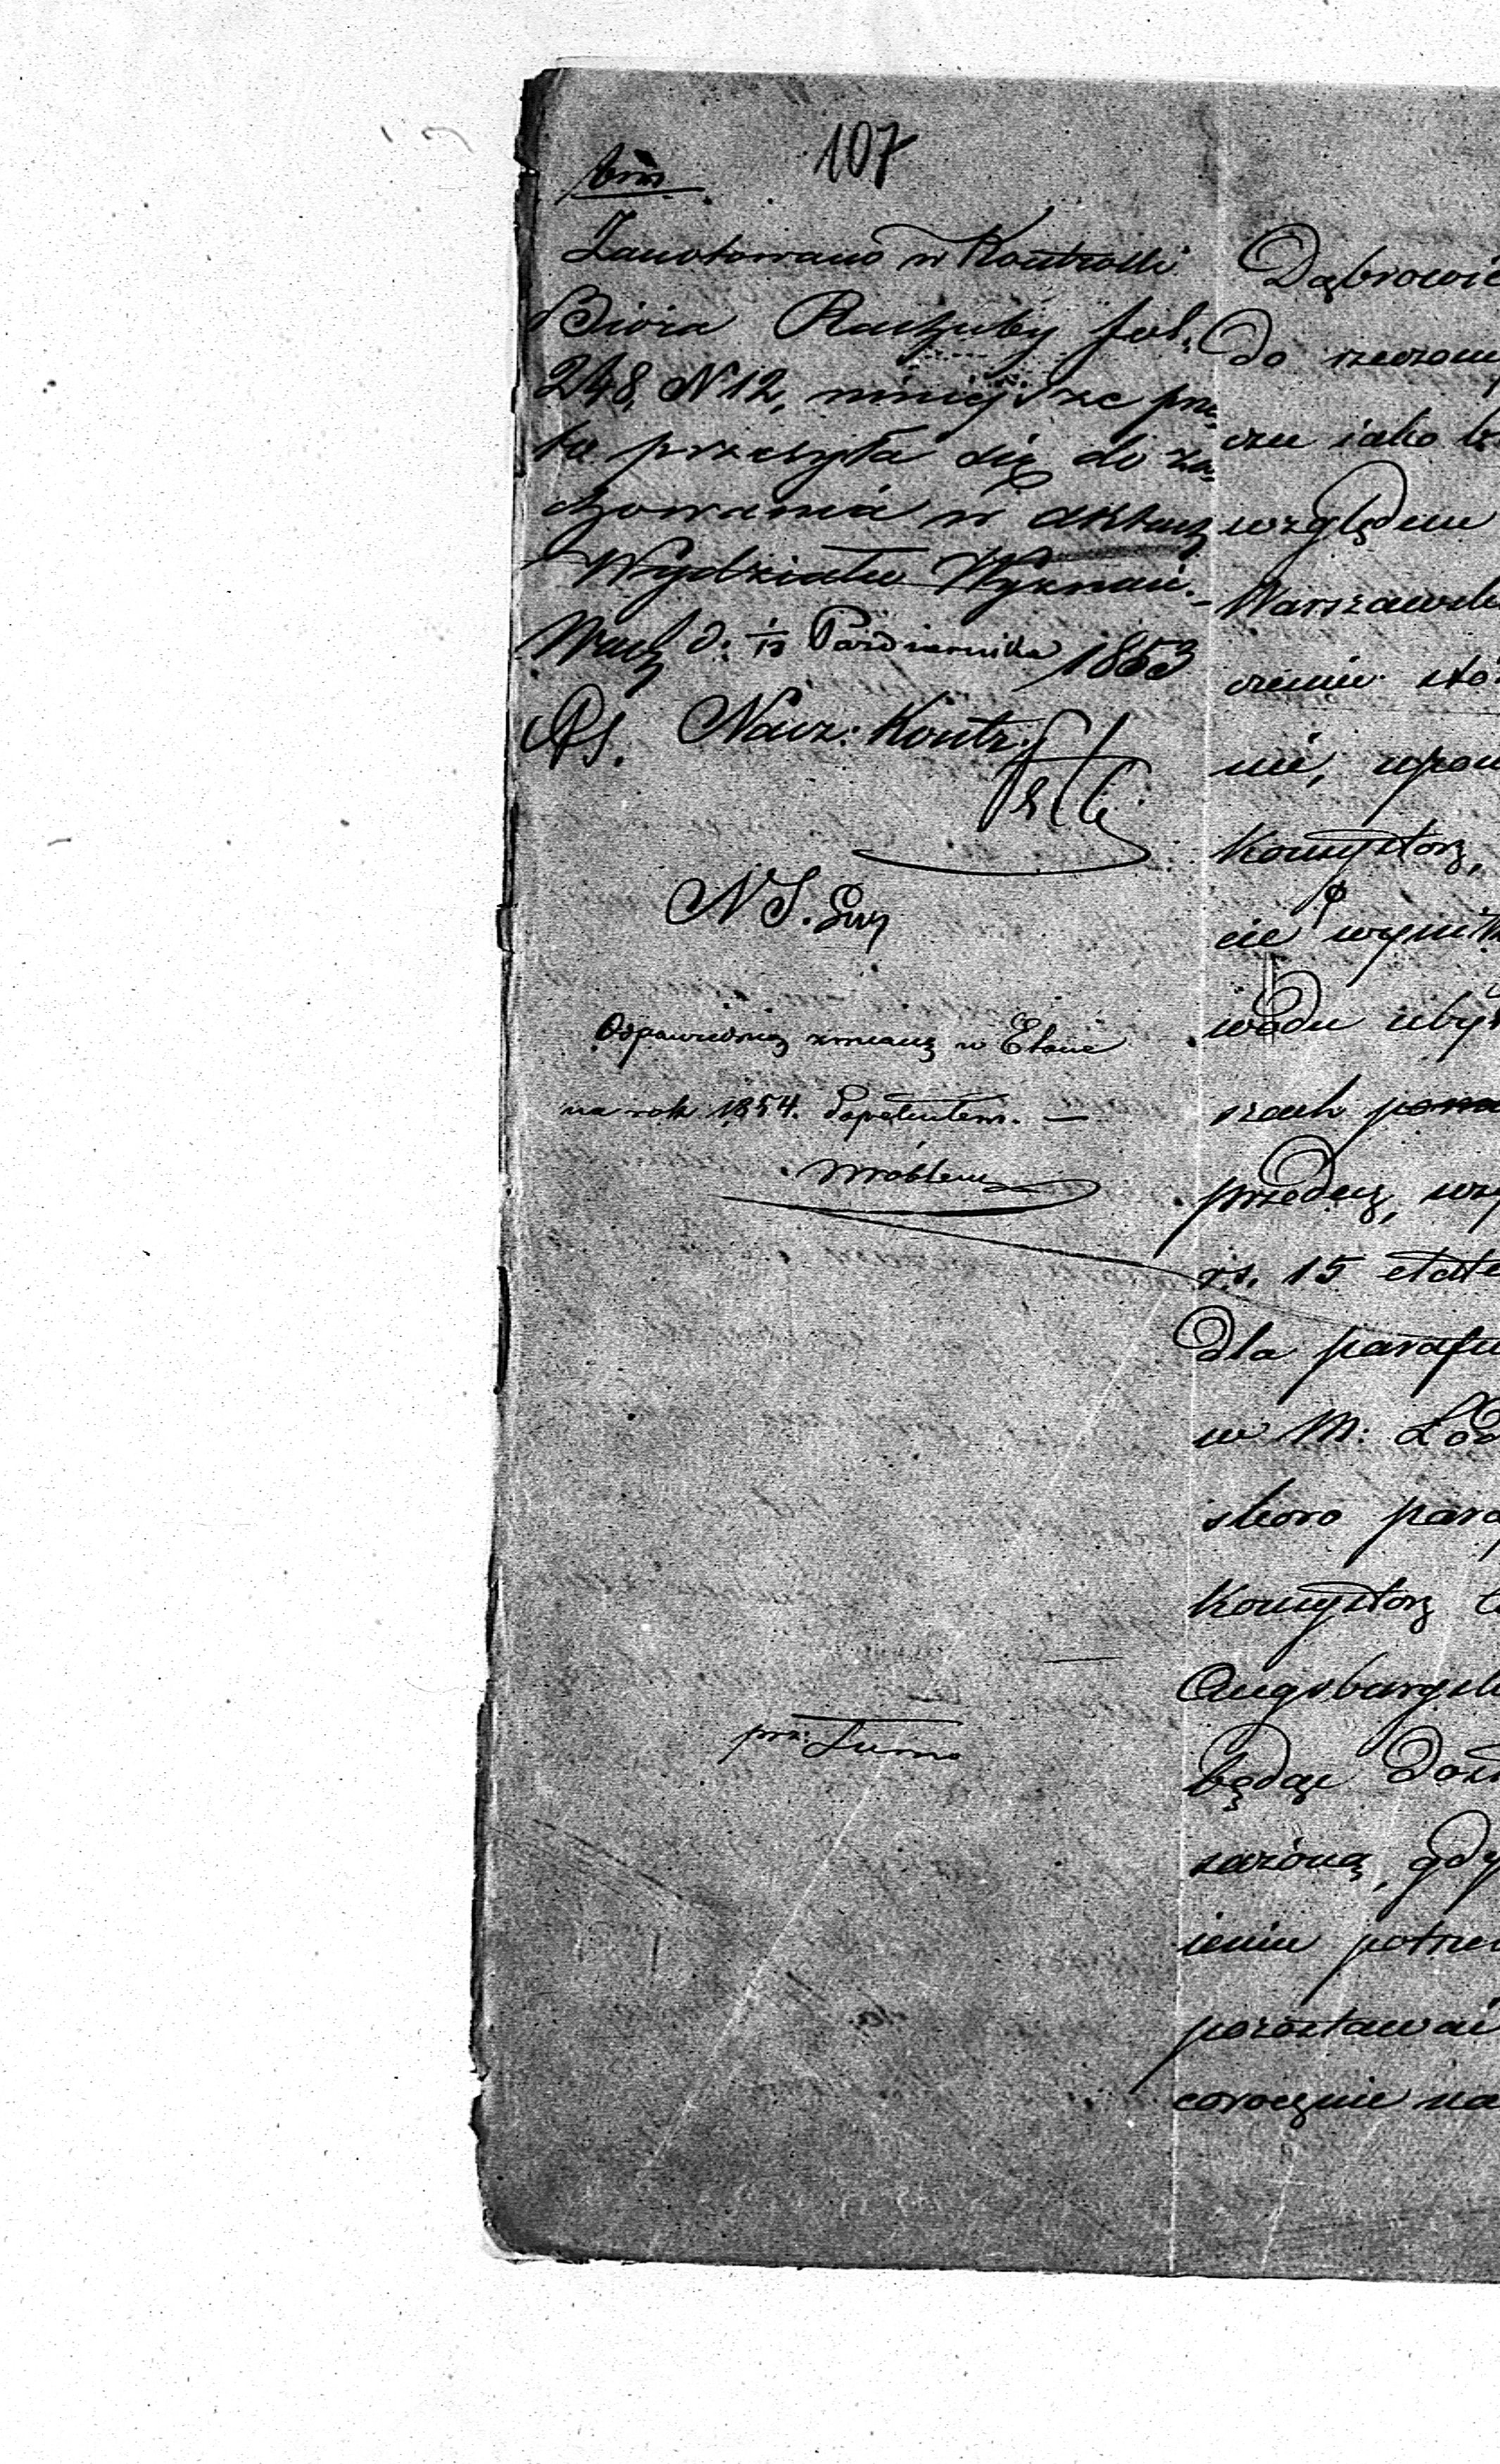 107
Zanotowano w Kontrolli
Bióra Rachuby fol.
248, N 12, niniejsze prze
to przesyła się do za-
chowania w aktach
Wydziału Wyznań. -
Warsz d. 1/13 Października 1853
Nacz: Kontr:
N S.
Odpowiednią zmianę w Etacie
na rok 1854. dopełniłem. —
Wróblew
prz: Lumo
Dąbrowie
do rzeczony
czu iako
względem
Warszawsk
czeniu
nié, upow
Konsystorz,
cie wynik
wodu uby
szach
przedaż,
rs. 15 etat
dla parafii
w M: Łod
skoro para
Konsystorz
Augsburgsk
będąc
sażoną, gdy
ieniu potrze
pozostawai
corocznie na